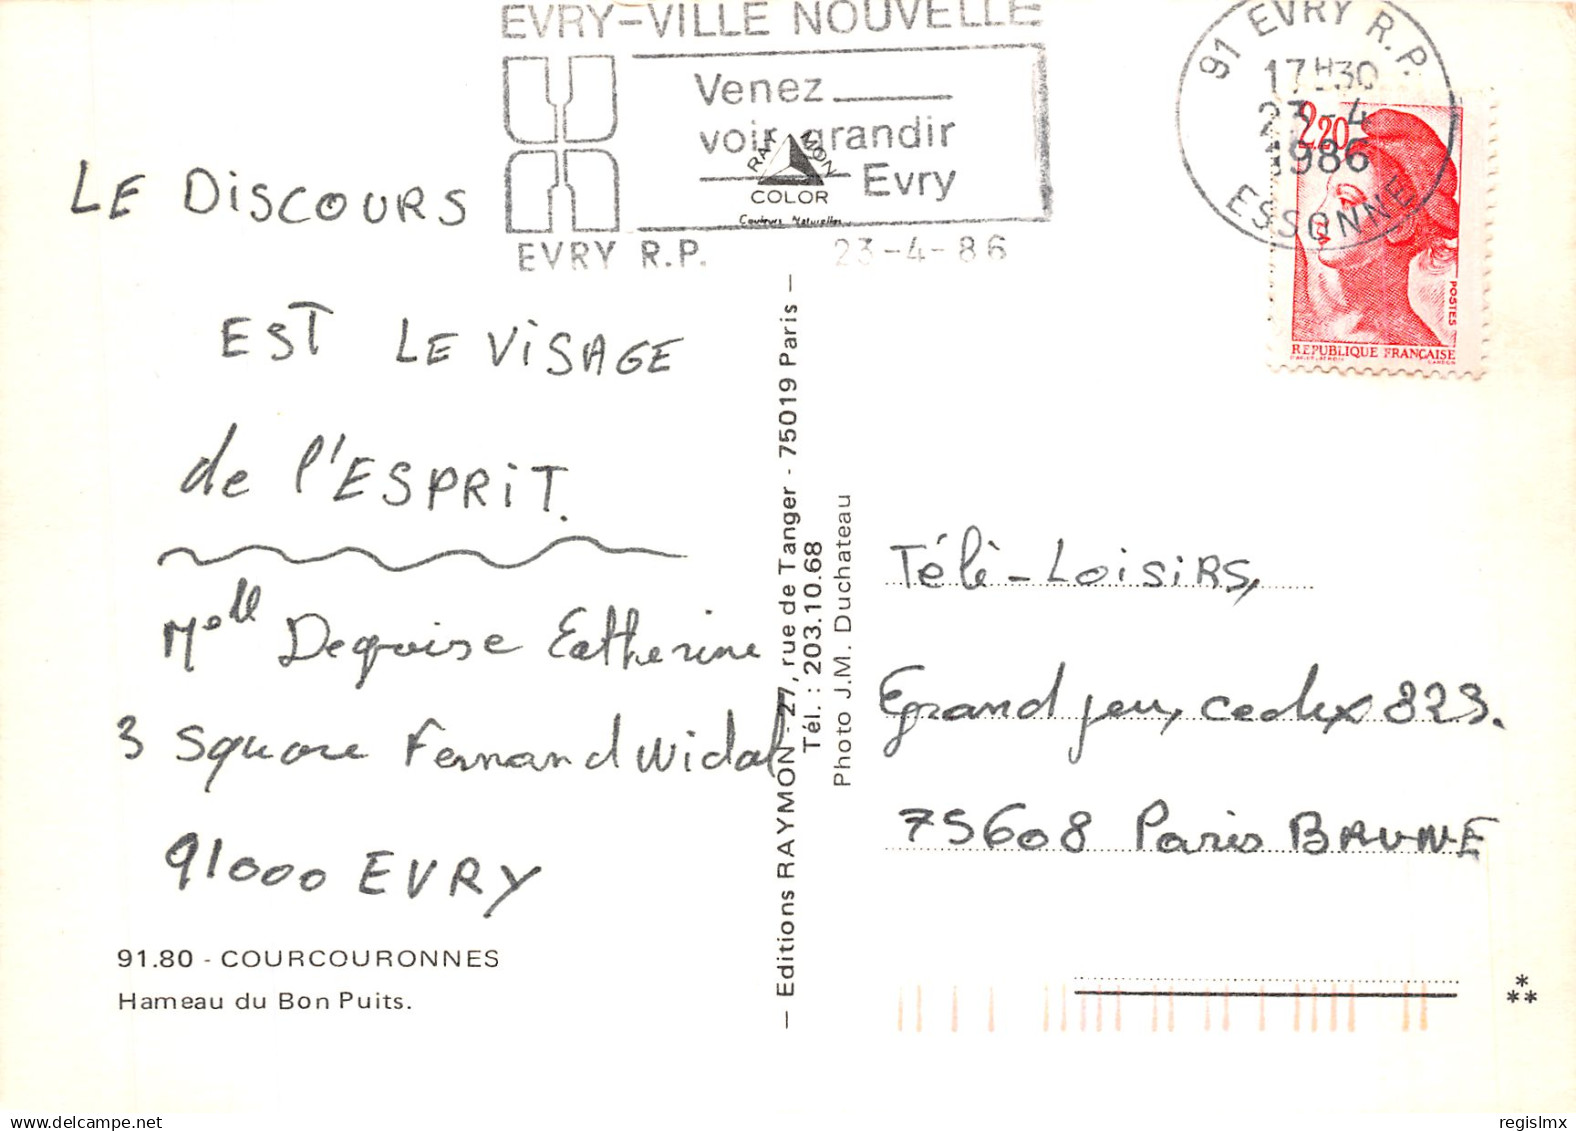 EVRY-VILLE NOUVELLE
Venez
voir grandir
Evry
EVRY R.P. 23-4-86
RAYMON
COLOR
Couleurs Naturelles
91 EVRY R.P.
17H30
23-4
1986
ESSONNE
2,20
POSTES
REPUBLIQUE FRANÇAISE
LE DISCOURS
EST LE VISAGE
de l'ESPRIT.
Melle Dequoise Catherine
3 Square Fernand Widal
91000 EVRY
91.80 - COURCOURONNES
Hameau du Bon Puits.
— Editions RAYMON - 27, rue de Tanger - 75019 Paris —
Tél. : 203.10.68
Photo J.M. Duchateau
Télé-Loisirs,
Grand jeu, cedex 823.
75608 Paris BRUNE
regislmx